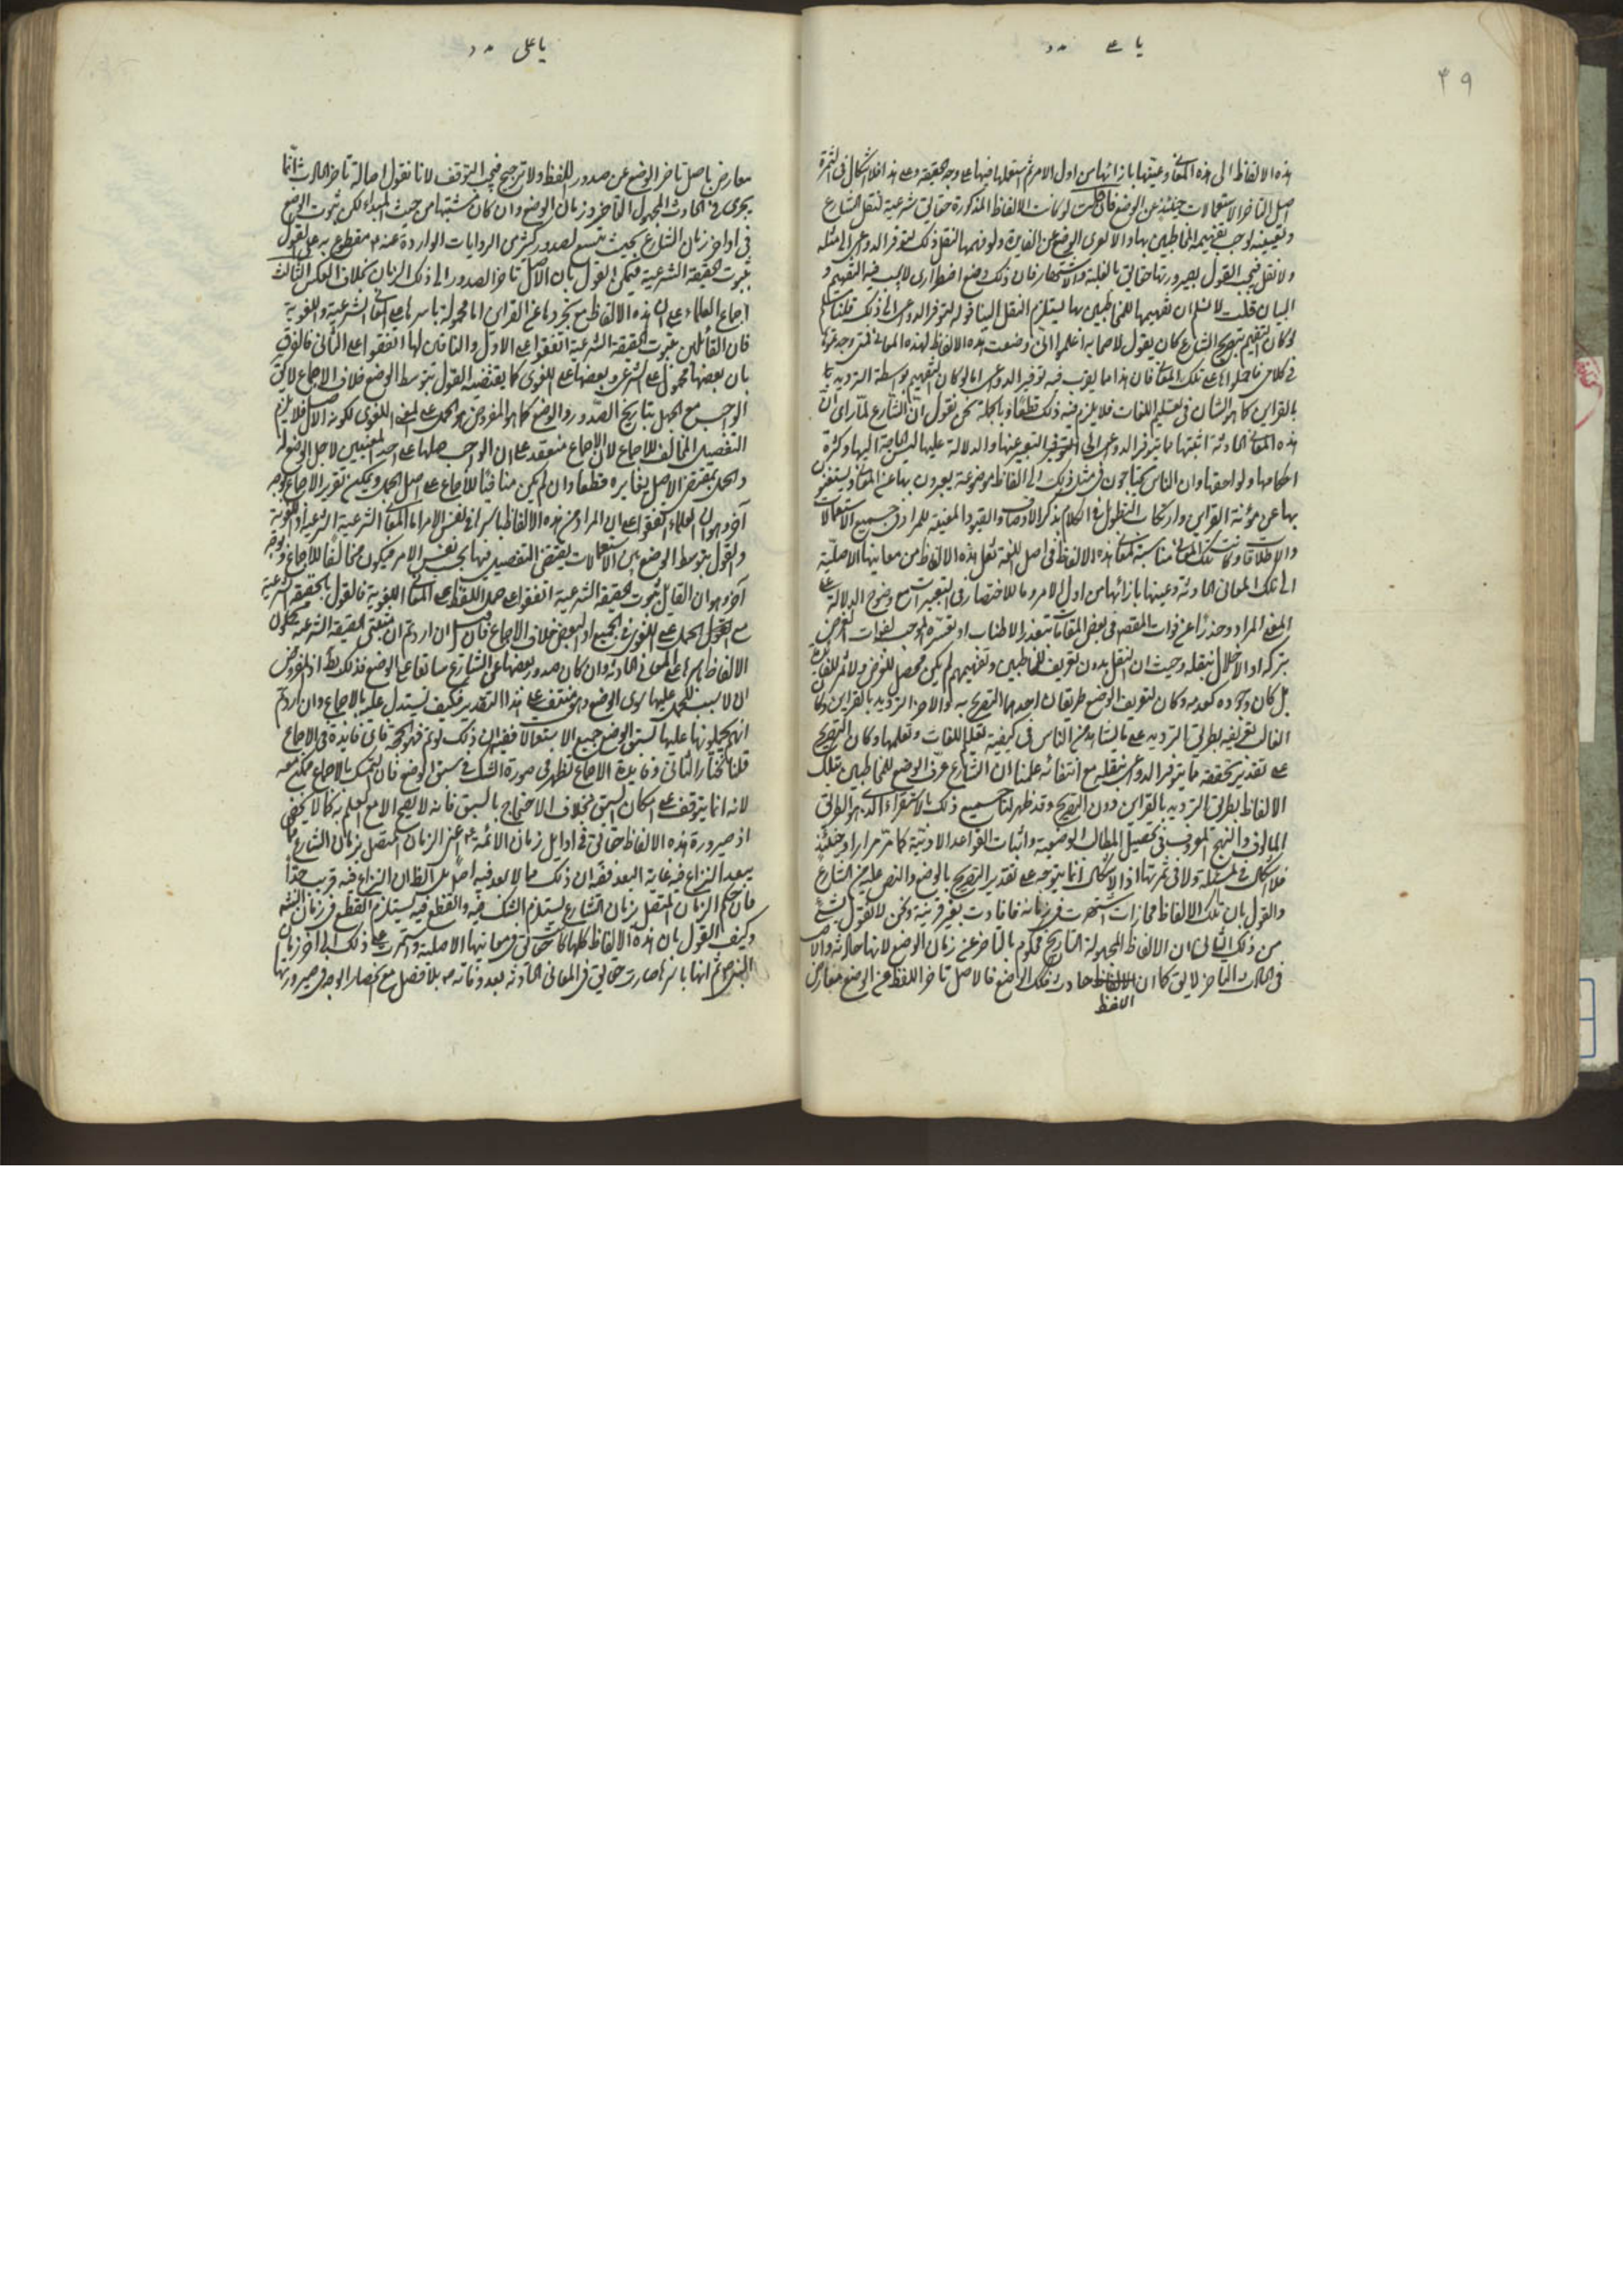 يا على مدد
٣٩
هذه الالفاظ الى هذه المعانى وعينها بازائها من اول الامر ثم استعملها فيها على وجه الحقيقة وعلى هذا فلا اشكال فى الثمرة
اصل التاخر الاستعمالات حينئذ عن الوضع فان قلت لو كانت الالفاظ المذكورة حقايق شرعية لنقل الشارع
وتعيينه لوجب تفهيمه المخاطبين بها والا لعرى الوضع عن الفايدة ولو فهمها لنقل ذلك لتوفر الدواعى الى مثله
ولا نقل فيجب القول بصيرورتها حقايق بالغلبة والاشتهار فان ذلك وضع اضطرارى لا يجب فيه التفهيم و
البيان قلت لا نسلم ان تفهيمها للمخاطبين بها يستلزم النقل الينا قوله لتوفر الدواعى الى ذلك قلنا مسلم
لو كان التفهيم بتصريح الشارع كان يقول لاصحابه اعلموا انى وضعت هذه الالفاظ لهذه المعانى فمتى وجدتموها
فى كلامى فاحملوها على تلك المعانى فان هذا مما يقرب فيه توفير الدواعى اما لو كان التفهيم بواسطة الترديد
بالقراين كما هو الشان فى تعليم اللغات فلا يلزم فيه ذلك قطعا وبالجملة نحن نقول انّ الشارع لمّا راى انّ
هذه المعانى الحادثة اثبتها مما يتوفر الدواعى الى التعبير عنها والدلالة عليها لمسيس الحاجة اليها وكثرة
احكامها ولواحقها وان الناس يحتاجون فى مثل ذلك الى الفاظ موضوعة يعبرون بها عن المعانى ويستغنى
بها عن مؤنة القراين وارتكاب التطويل فى الكلام بذكر الاوصاف والقيود المعينة للمراد فى جميع الاستعمالات
والاطلاقات وكانت تلك المعانى مناسبة لمعانى هذه الالفاظ فى اصل اللغة نقل هذه الالفاظ من معانيها الاصليّة
الى تلك المعانى الحادثة وعينها بازائها من اول الامر روما للاختصار فى التعبيرات مع وضوح الدلالة على
المعنى المراد وحذرا عن فوات المقصد فى بعض المقامات بتعذر الاطناب او تعسره الموجب لفوات الغرض
بتركه او الاخلال بنقله وحيث ان النقل بدون تعريف المخاطبين وتفهيمهم لم يكن محصل للغرض ولا مثمر للفايدة
بل كان وجوده كعدمه وكان لتعريف الوضع طريقان احدهما التصريح به والاخر الترديد بالقراين وكان
الغالب تعريفه بطريق الترديد على ما يشاهد من الناس فى كيفية تعليم اللغات وتعلمها وكان التصريح
على تقدير تحققه مما يتوفر الدواعى بنقله مع انتفائه علمنا ان الشارع عرّف الوضع للمخاطبين بتلك
الالفاظ بطريق الترديد بالقراين دون التصريح وقد ظهر لنا جميع ذلك بالاستقراء الذى هو الطريق
المالوف والنهج المعروف فى تحصيل المطالب الوضعية واثبات القواعد الادبيّة كما مرّ مرارا وحينئذ
فلا اشكال فى المسئلة ولا فى ثمرتها اذ الاشكال انما يتوجه على تقدير التصريح بالوضع والنص عليه من الشارع
والقول بان تلك الالفاظ مجازات اشتهرت فى زمانه فافادت بغير قرينة ونحن لا نقول بشئ
من ذلك الثانى ان الالفاظ المجهولة التاريخ محكوم بالتاخر عن زمان الوضع لانها حادثة والاصل
فى الحادث التاخر لا يق كما ان اللفظ حادث فكذلك الوضع فالاصل تاخر اللفظ عن الوضع معارض
يا على مدد
معارض باصل تاخر الوضع عن صدور اللفظ ولا ترجيح فيجب التوقف لانا نقول اصالة تاخر الحادث انّما
يجرى فى الحادث المجهول التاخر وزمان الوضع وان كان مشتبها من حيث المبداء لكن ثبوت الوضع
فى اواخر زمان الشارع بحيث يتسع لصدور كثير من الروايات الواردة عنه م مقطوع به على القول
بثبوت الحقيقة الشرعية فيمكن القول بان الاصل تاخر الصدور الى ذلك الزمان بخلاف العكس الثالث
اجماع العلماء على ان هذه الالفاظ مع تجردها عن القراين اما محمولة باسرها على المعانى الشرعية واللغوية
فان القائلين بثبوت الحقيقة الشرعية اتفقوا على الاول والنافين لها اتفقوا على الثانى فالفرق
بان بعضها محمول على الشرعى وبعضها على اللغوى كما يقتضيه القول بتوسط الوضع خلاف الاجماع لا يق
الواجب مع الجهل بتاريخ الصدور والوضع كما هو المفروض هو الحمل على المعنى اللغوى لكونه الاصل فلا يلزم
التفصيل المخالف للاجماع لان الاجماع منعقد على ان الواجب حملها على احد المعنيين لاجل الوضع له
والحمل بمقتضى الاصل يغايره قطعا وان لم يكن منافيا للاجماع على اصل الحمل ويمكن تقرير الاجماع بوجه
آخر وهو ان العلماء اتفقوا على ان المراد من هذه الالفاظ باسرها فى نفس الامر اما المعانى الشرعية او اللغوية
والقول بتوسط الوضع بين الاستعمالات يقتضى التفصيل فيها بحسب نفس الامر فيكون مخالفا للاجماع وبوجه
آخر وهو ان القايل بثبوت الحقيقة الشرعية اتفقوا على حمل اللفظ على المعانى اللغوية فالقول بالحقيقة الشرعية
مع القول بالحمل على اللغوى فى الجميع او البعض خلاف الاجماع فان قيل ان اردتم ان مثبتى الحقيقة الشرعية يحملون
الالفاظ باسرها على المعانى الحادثة وان كان صدور بعضها عن الشارع سابقا على الوضع فذلك بط اذ المفروض
ان لا سبب للحمل عليها سوى الوضع وهو منتف على هذا التقدير فكيف يستدل عليه بالاجماع وان اردتم
انهم يحملونها عليها لسبق الوضع جميع الاستعمالات فقيل ان ذلك لو تم فهو الحجة فاى فايدة فى الاجماع
قلنا نختار الثانى وفايدة الاجماع تظهر فى صورة الشك فى سبق الوضع فان التمسك بالاجماع ممكن معه
لانه انما يتوقف على امكان السبق بخلاف الاحتجاج بالسبق فانه لا يصح الا مع العلم به كما لا يخفى
اذ صيرورة هذه الالفاظ حقايق فى اوايل زمان الائمة ع اعنى الزمان المتصل بزمان الشارع مما
يبعد النزاع فيه غاية البعد فقيل ان ذلك مما لا بعد فيه اصلا بل الظان النزاع فيه قريب جدّا
فان حكم الزمان المتصل بزمان الشارع يستلزم الشك فيه والقطع فيه يستلزم القطع فى زمان الش
وكيف القول بان هذه الالفاظ كلها كانت حقايق فى معانيها الاصلية واستمرت على ذلك الى آخر زمان
النبى ص ثم انها باسرها صارت حقايق فى المعانى الحادثة بعد وفاته ص بلا فصل مع انحصار الوجه فى صيرورتها